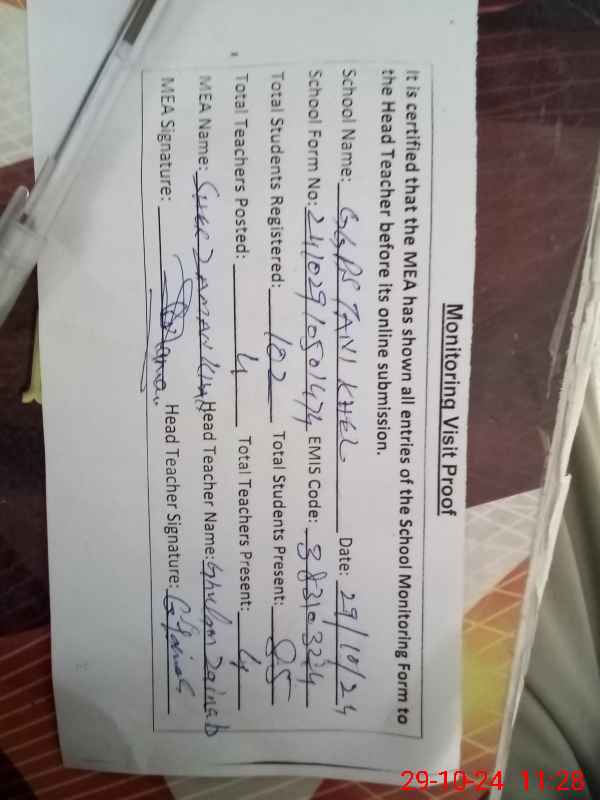 Monitoring Visit Proof
It is certified that the MEA has shown all entries of the School Monitoring Form to
the Head Teacher before its online submission.
School Name: GGPS TANI KHEL Date: 29/10/24
School Form No: 24102910501474 EMIS Code: 38310324
Total Students Registered: 102 Total Students Present: 85
Total Teachers Posted: 4 Total Teachers Present: 4
MEA Name: SHER ZAMAN KHAN Head Teacher Name: Ghulam Zainab
MEA Signature: Head Teacher Signature:
29-10-24 11:28